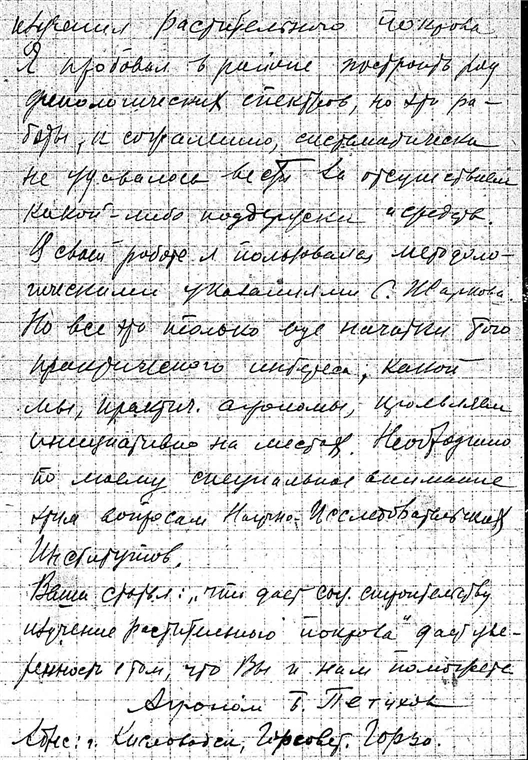 изучения растительного покрова
Я пробовал в районе построить ряд
фенологических спектров, но эти ра-
боты, к сожалению, систематически
не удавалось вести за отсутствием
какой-либо поддержки и средств.
В своей работе я пользовался методоло-
гическими указаниями С. Жаркова
Но все это только еще начатки того
практического интереса, какой
мы, практич. агрономы, проявляем
инициативно на местах. Необходимо
по моему специальное внимание
этим вопросам Научно-Исследовательских
Институтов.
Ваша статья: „что дает соц. строительству
изучение растительного покрова" дает уве-
ренность в том, что Вы и нам поможете
Агроном Б. Петухов
Адрес: г. Кисловодск, Горсовет. ГорЗо.